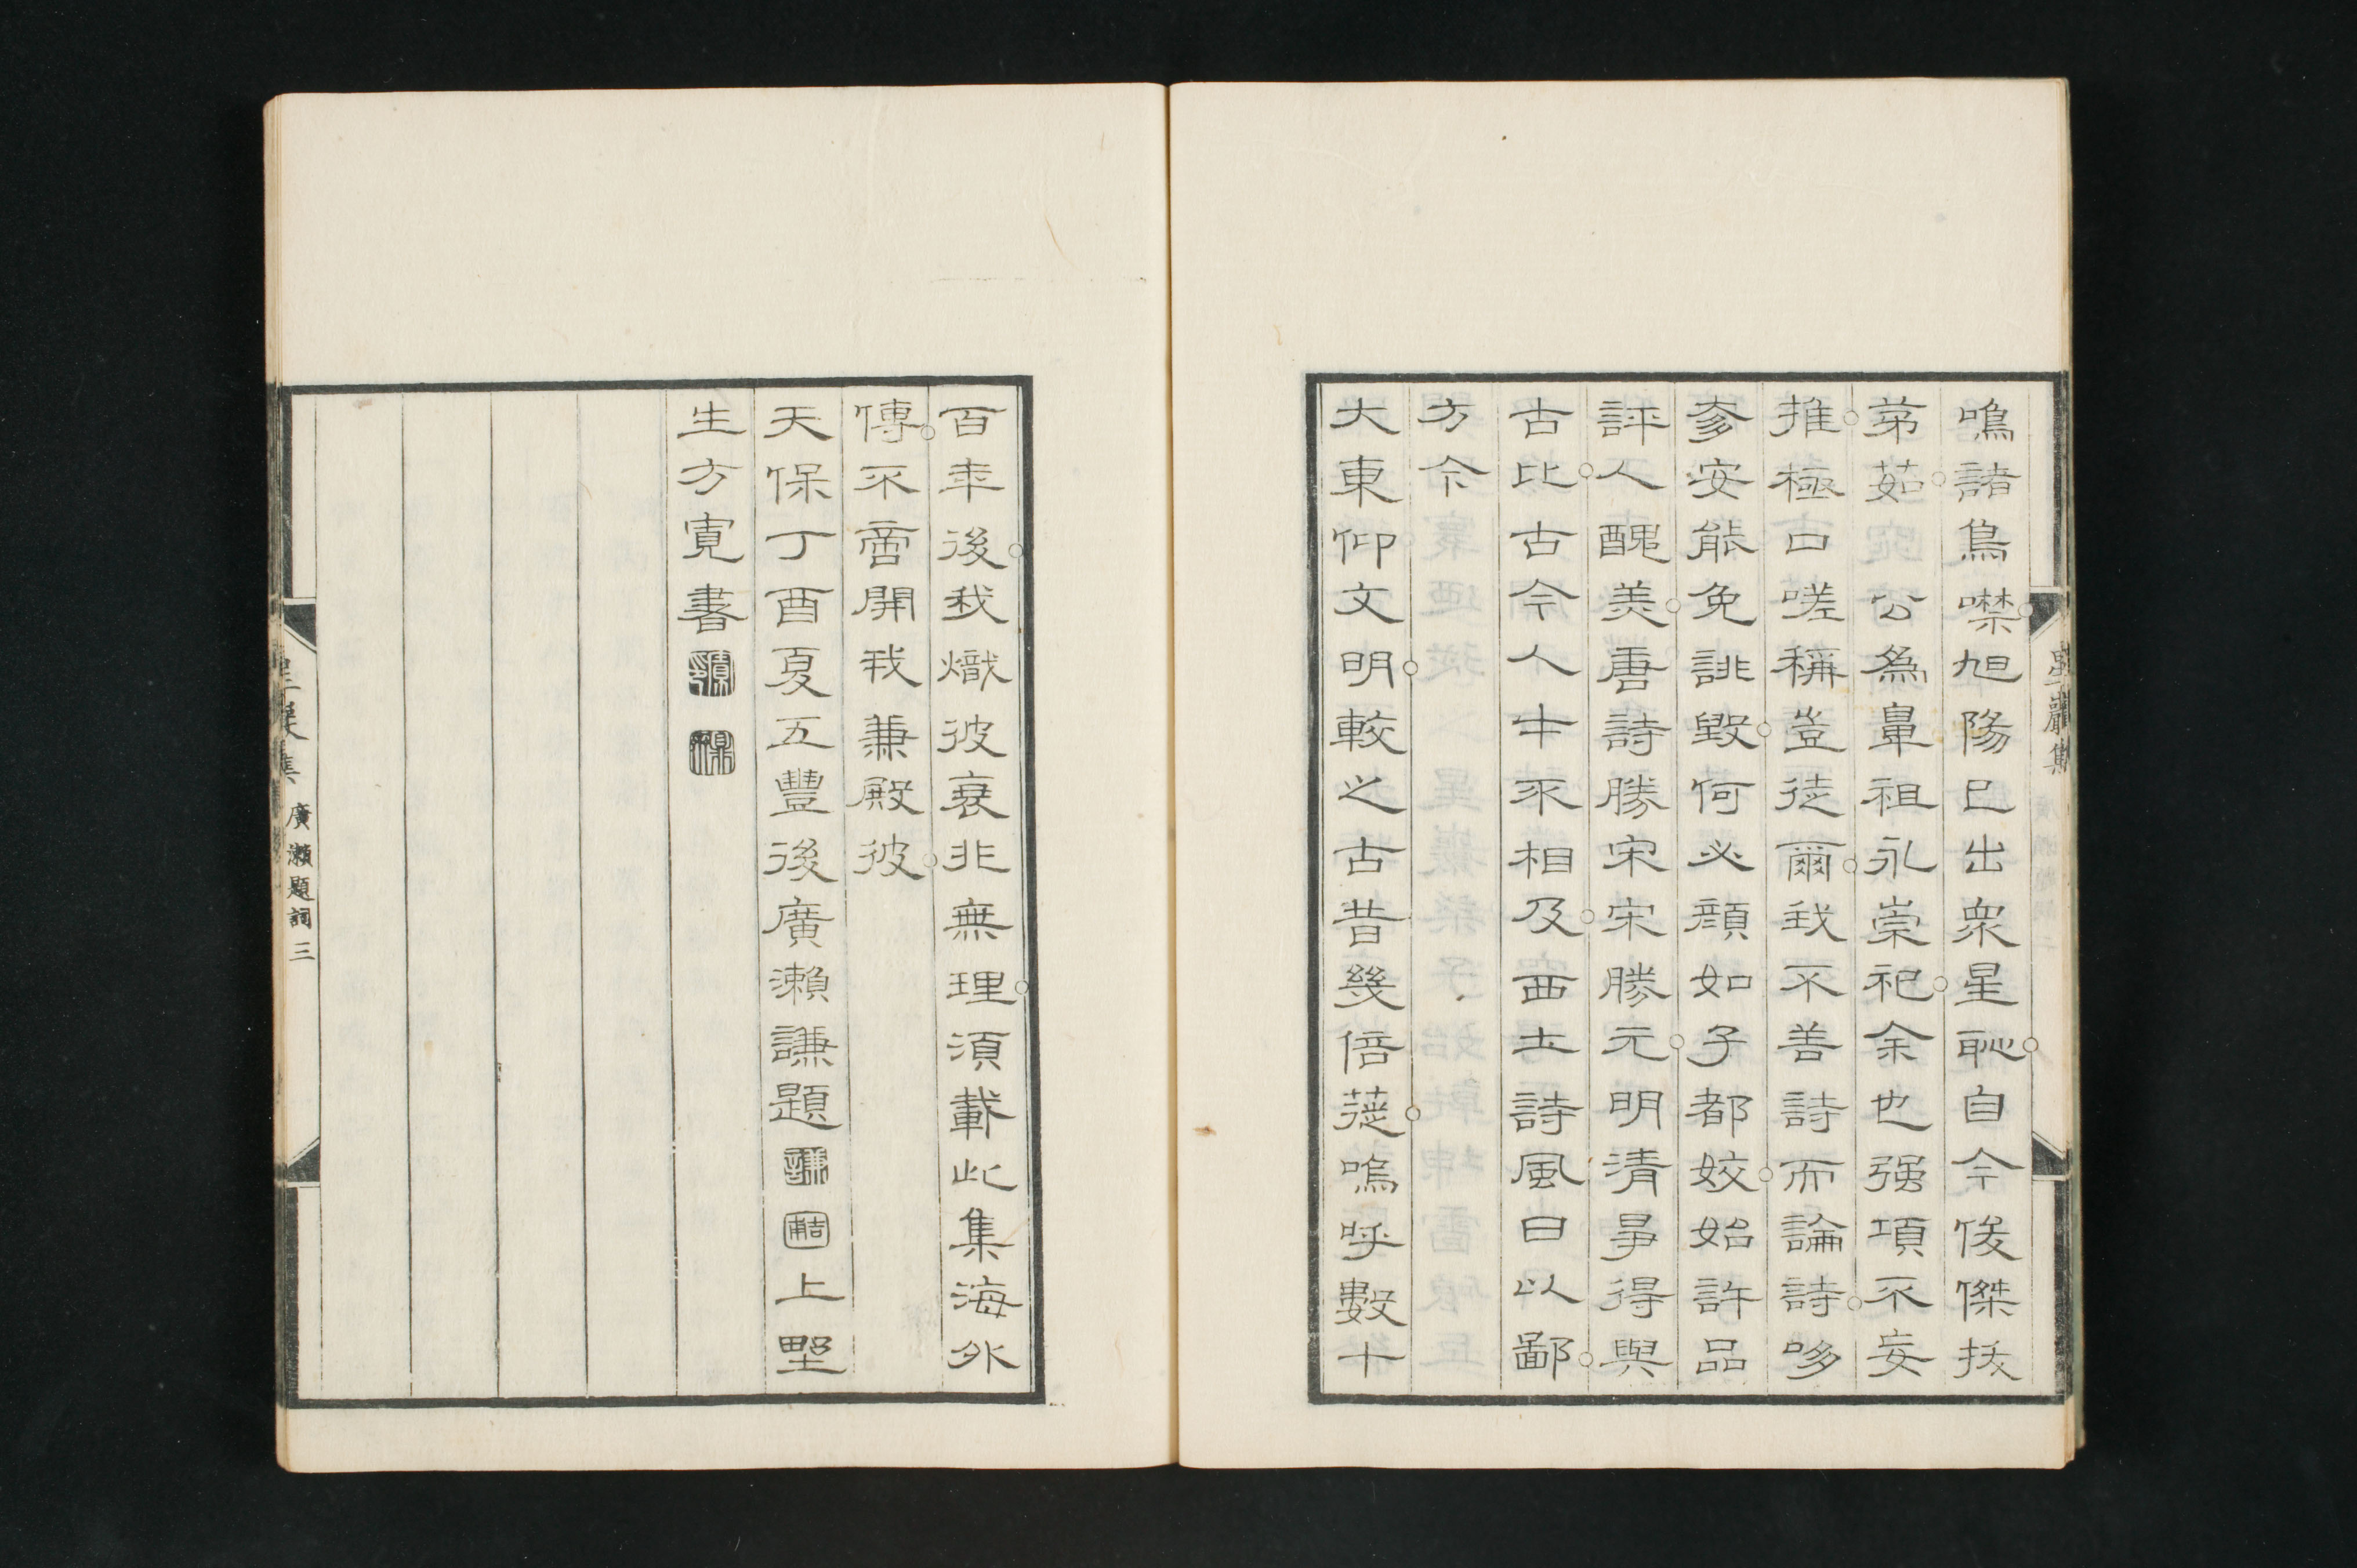 鳴諸鳥噤旭陽已出衆星恥自今俊傑拔
茅茹 公爲鼻祖永崇祀余也强項不妄
推極口嗟稱豈徒爾我不善詩而論詩哆
奓安能免誹毀何必顔如子都姣始許品
評人醜美唐詩勝宋宋勝元明清爭得與
古比古今人才不相及西土詩風日以鄙
方今
大東仰文明較之古昔幾倍蓰嗚呼數十
百年後我熾彼衰非無理須載此集海外
傳不啻開我兼殿彼
天保丁酉夏五豐後廣瀬謙題 謙 吉甫 上野
生方寛書
星巖集
星巖集 廣瀬題詞 三